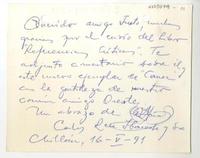 Querido amigo Justo, muchas
gracias por el envío del libro
"Referencias Críticas". Te
adjunto comentario sobre él y
este nuevo ejemplar de "Cauce"
con la gentileza de nuestro
común amigo Oreste.
Un abrazo de
Carlos René
Chillán, 16-V-91